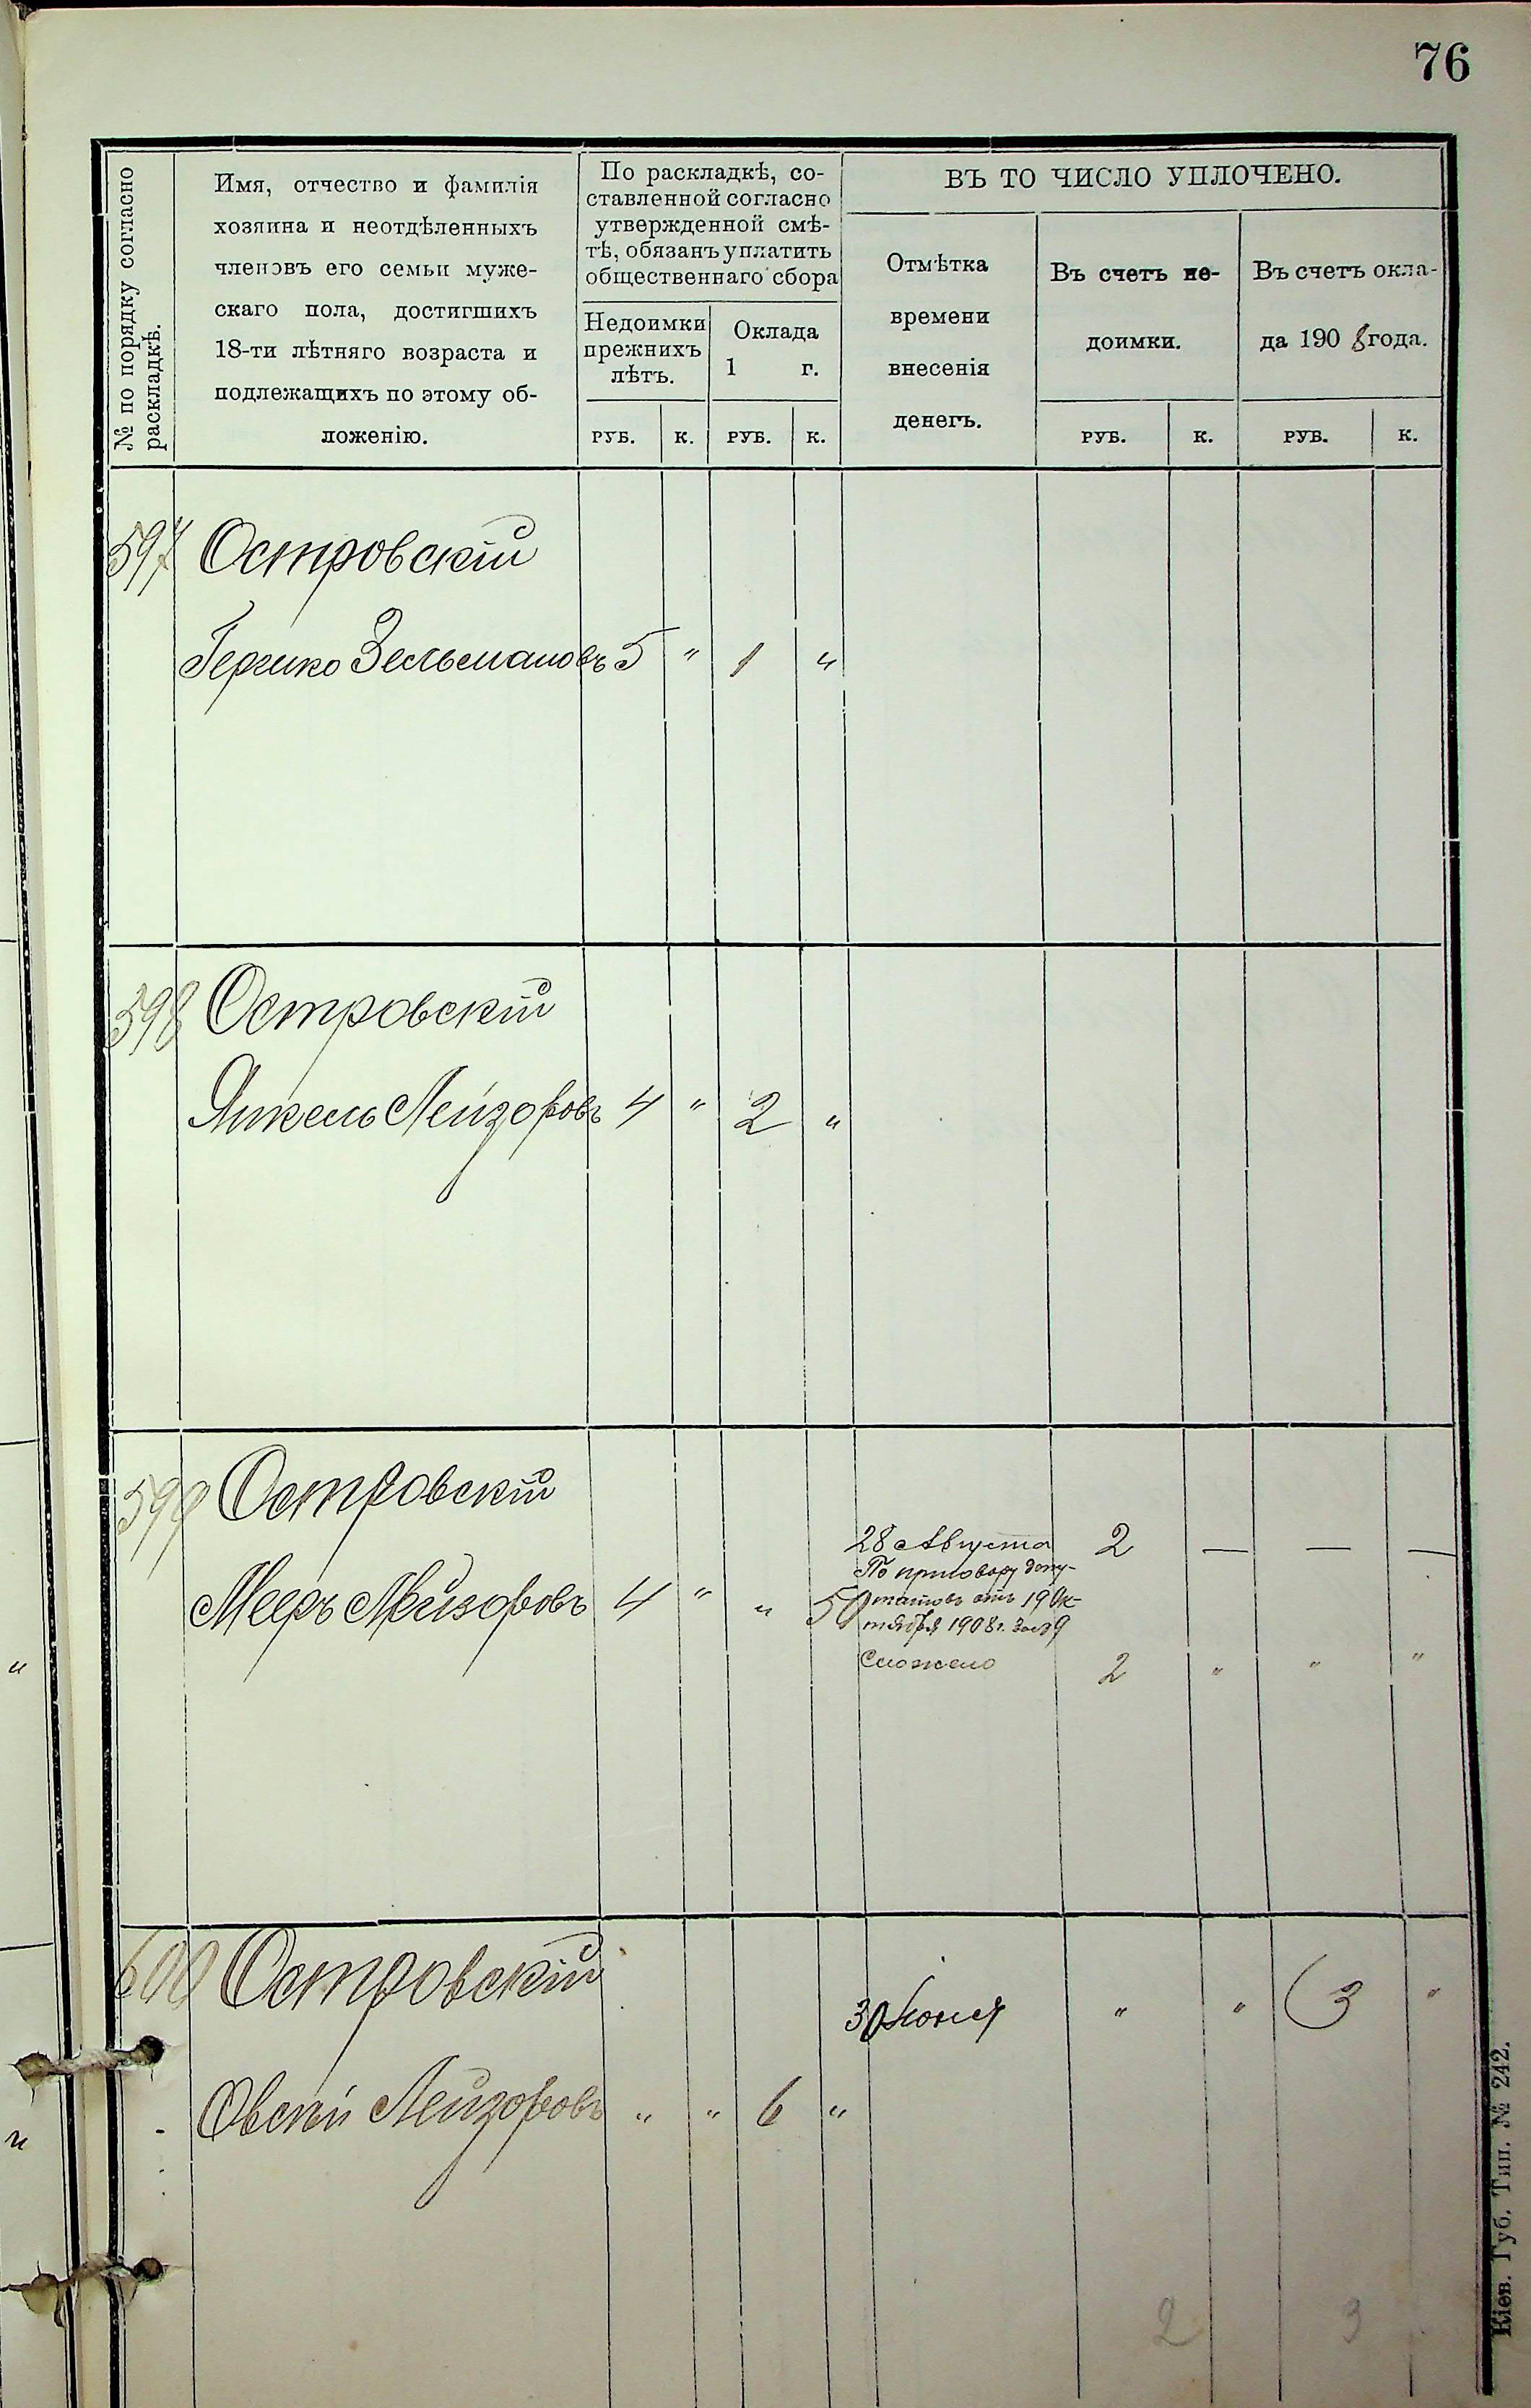 76
№ по порядку согласно
раскладкѣ.
Имя, отчество и фамилія
хозяина и неотдѣленныхъ
членовъ его семьи муже-
скаго пола, достигшихъ
18-ти лѣтняго возраста и
подлежащихъ по этому об-
ложенію.
По раскладкѣ, со-
ставленной согласно
утвержденной смѣ-
тѣ, обязанъ уплатить
общественнаго сбора
Недоимки
прежнихъ
лѣтъ.
Оклада
1 г.
РУБ. К. РУБ. К.
ВЪ ТО ЧИСЛО УПЛОЧЕНО.
Отмѣтка
времени
внесенія
денегъ.
Въ счетъ не-
доимки.
Въ счетъ окла-
да 1908 года.
РУБ. К. РУБ. К.
597 Островскій
Гершко Зельмановъ 5 " 1 "
598 Островскій
Янкель Лейзоровъ 4 " 2 "
599 Островскій
28 Августа 2 — — —
По приговору депу-
Мееръ Лейзоровъ 4 " " 50
татовъ отъ 19 Ок-
тября 1908 г. за № 9
Сложено 2 " " "
600 Островскій
30 Іюня " " 3 "
Овсѣй Лейзоровъ " " 6 "
2 3
Кіев. Губ. Тип. № 242.